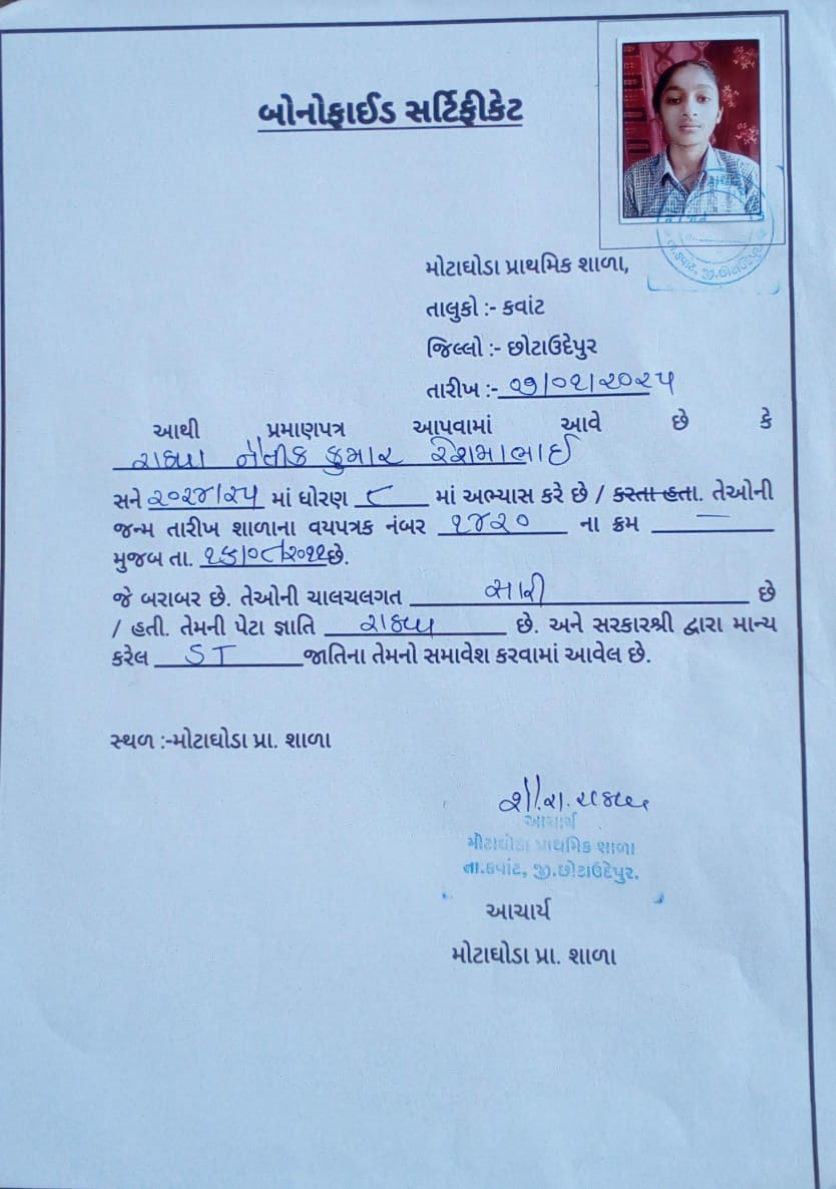 બોનોફાઈડ સર્ટિફીકેટ
તા.કવાંટ, જી.છોટાઉદેપુર
મોટાઘોડા પ્રાથમિક શાળા,
તાલુકો :- કવાંટ
જિલ્લો :- છોટાઉદેપુર
તારીખ :- ૨૭/૦૨/૨૦૨૫
આથી પ્રમાણપત્ર આપવામાં આવે છે કે
રાઠવા નૈતીક કુમાર રેશમાભાઈ
સને ૨૦૨૪/૨૫ માં ધોરણ ૮ માં અભ્યાસ કરે છે / કરતા હતા. તેઓની
જન્મ તારીખ શાળાના વયપત્રક નંબર ૧૪૨૦ ના ક્રમ —
મુજબ તા. છે.
જે બરાબર છે. તેઓની ચાલચલગત સારી છે
/ હતી. તેમની પેટા જ્ઞાતિ રાઠવા છે. અને સરકારશ્રી દ્વારા માન્ય
કરેલ ST જાતિના તેમનો સમાવેશ કરવામાં આવેલ છે.
સ્થળ :-મોટાઘોડા પ્રા. શાળા
આચાર્ય
મોટાઘોડા પ્રાથમિક શાળા
તા.કવાંટ, જી.છોટાઉદેપુર.
આચાર્ય
મોટાઘોડા પ્રા. શાળા